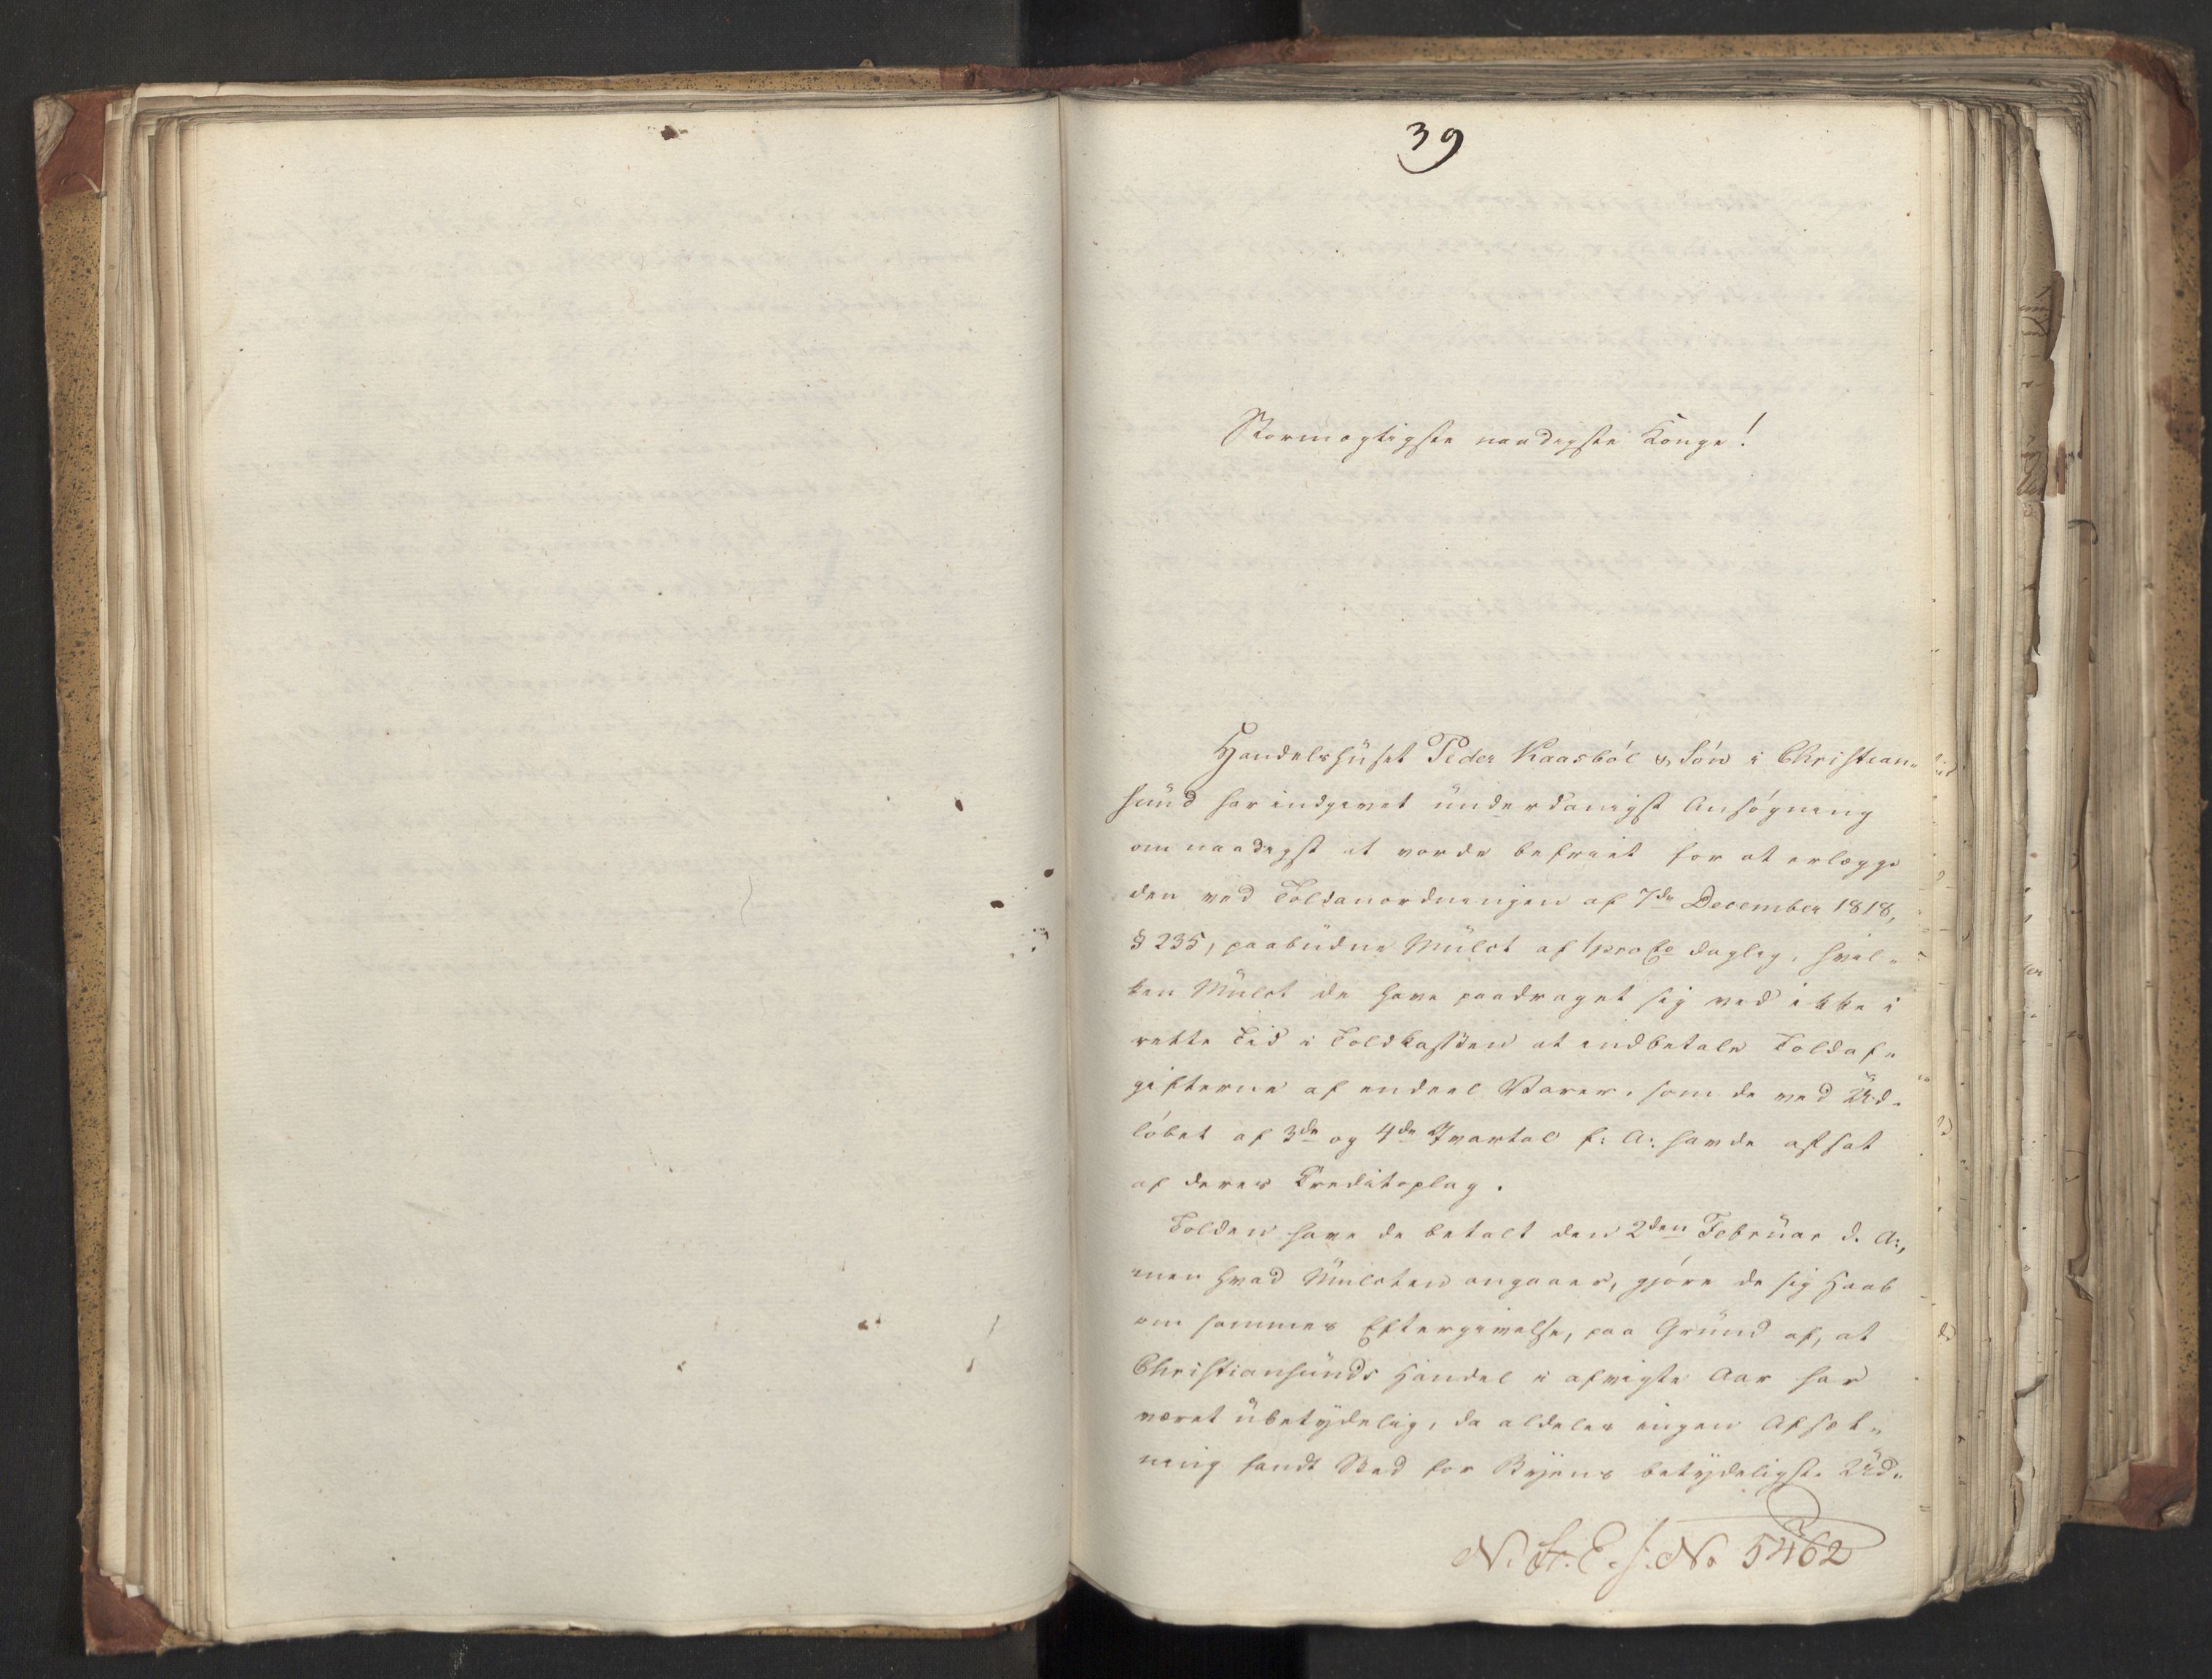 39
Stormægtigste naadigste Konge!
Handelshuset Peder Kaasbøl & Søn i Christian-
sund har indgivet underdanigst Ansøgning
om naadigst at vorde befriet for at erlægge
den ved Toldanordningen af 7de December 1818,
§ 235, paabudne Mulct af 1 pro Co daglig, hvil-
ken Mulct de have paadraget sig ved ikke i
rette Tid i Toldkassen at indbetale Toldaf-
gifterne af endeel Varer, som de ved Ud-
løbet af 3de og 4de Qvartal f: A: havde afsat
af deres Creditoplag.
Tolden have de betalt den 2den Februar d. A:,
men hvad Mulcten angaaer, gjøre de sig Haab
om sammes Eftergivelse, paa Grund af, at
Christiansunds Handel i afvigte Aar har
været ubetydelig, da aldeles ingen Afsæt-
ning fandt Sted for Byens betydeligste Ud-
N. St. E. J. No 5462